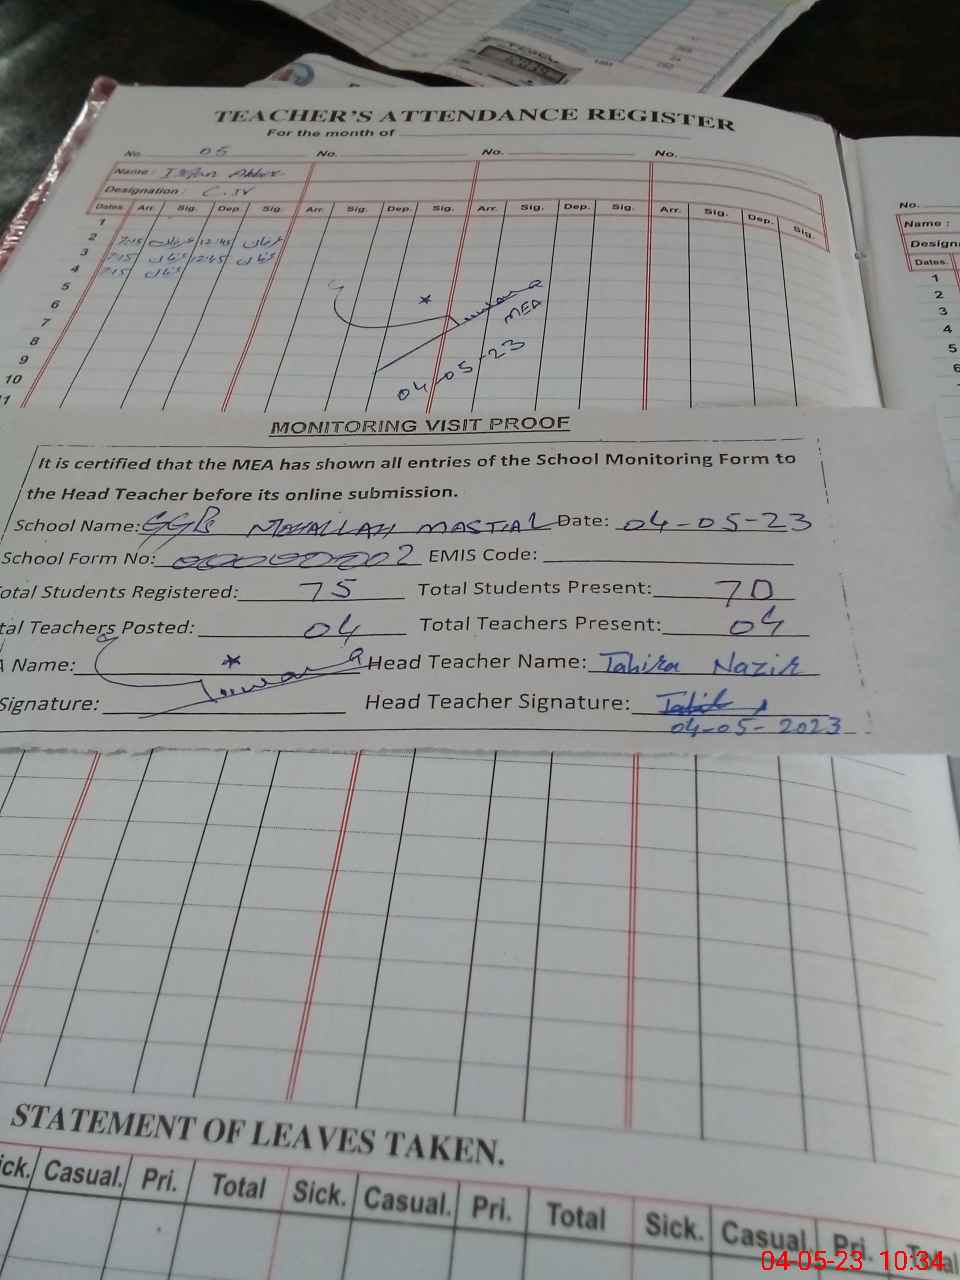 TEACHER'S ATTENDANCE REGISTER
For the month of
No. 05 No. No. No.
Name :
Designation : C.IV
Dates Arr. Sig. Dep. Sig. Arr. Sig. Dep. Sig. Arr. Sig. Dep. Sig. Arr. Sig. Dep. Sig.
1
2 7:15 عرفان 12:45 عرفان
3 7:15 عرفان 12:45 عرفان
4 7:15 عرفان
5
6
7
8
9
10
11
MEA
04-05-23
No.
Name :
Design
Dates.
1
2
3
4
5
6
MONITORING VISIT PROOF
It is certified that the MEA has shown all entries of the School Monitoring Form to
the Head Teacher before its online submission.
School Name: MOHALLAH MASTIAL Date: 04-05-23
School Form No: 000000002 EMIS Code:
otal Students Registered: 75 Total Students Present: 70
tal Teachers Posted: 04 Total Teachers Present: 04
A Name: Head Teacher Name: Tahira Nazir
Signature: Head Teacher Signature:
04-05-2023
STATEMENT OF LEAVES TAKEN.
ick. Casual. Pri. Total Sick. Casual. Pri. Total Sick. Casual. Pri. Total
04-05-23 10:34